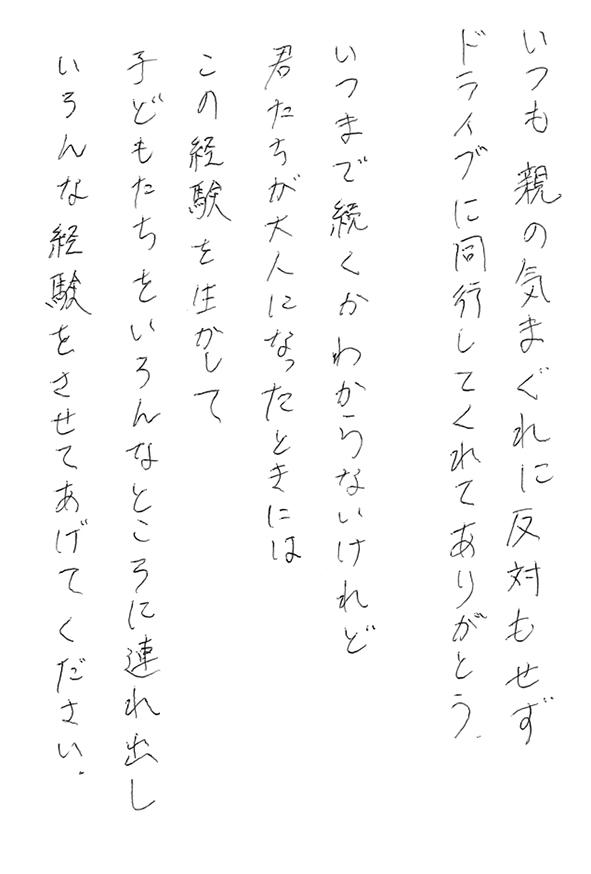 いつも 親の気まぐれに反対もせず
ドライブに同行してくれてありがとう.
いつまで続くかわからないけれど
君たちが大人になったときには
この経験を生かして
子どもたちをいろんなところに連れ出し
いろんな経験をさせてあげてください.